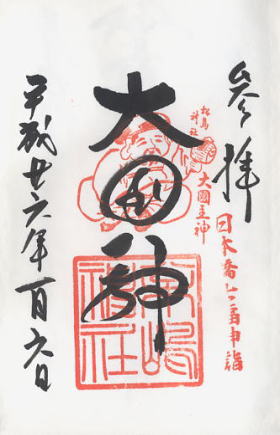 参拝
日本橋七福神詣
大國主神
松島
神社
大国神
松嶋
神社
平成廿六年一月六日